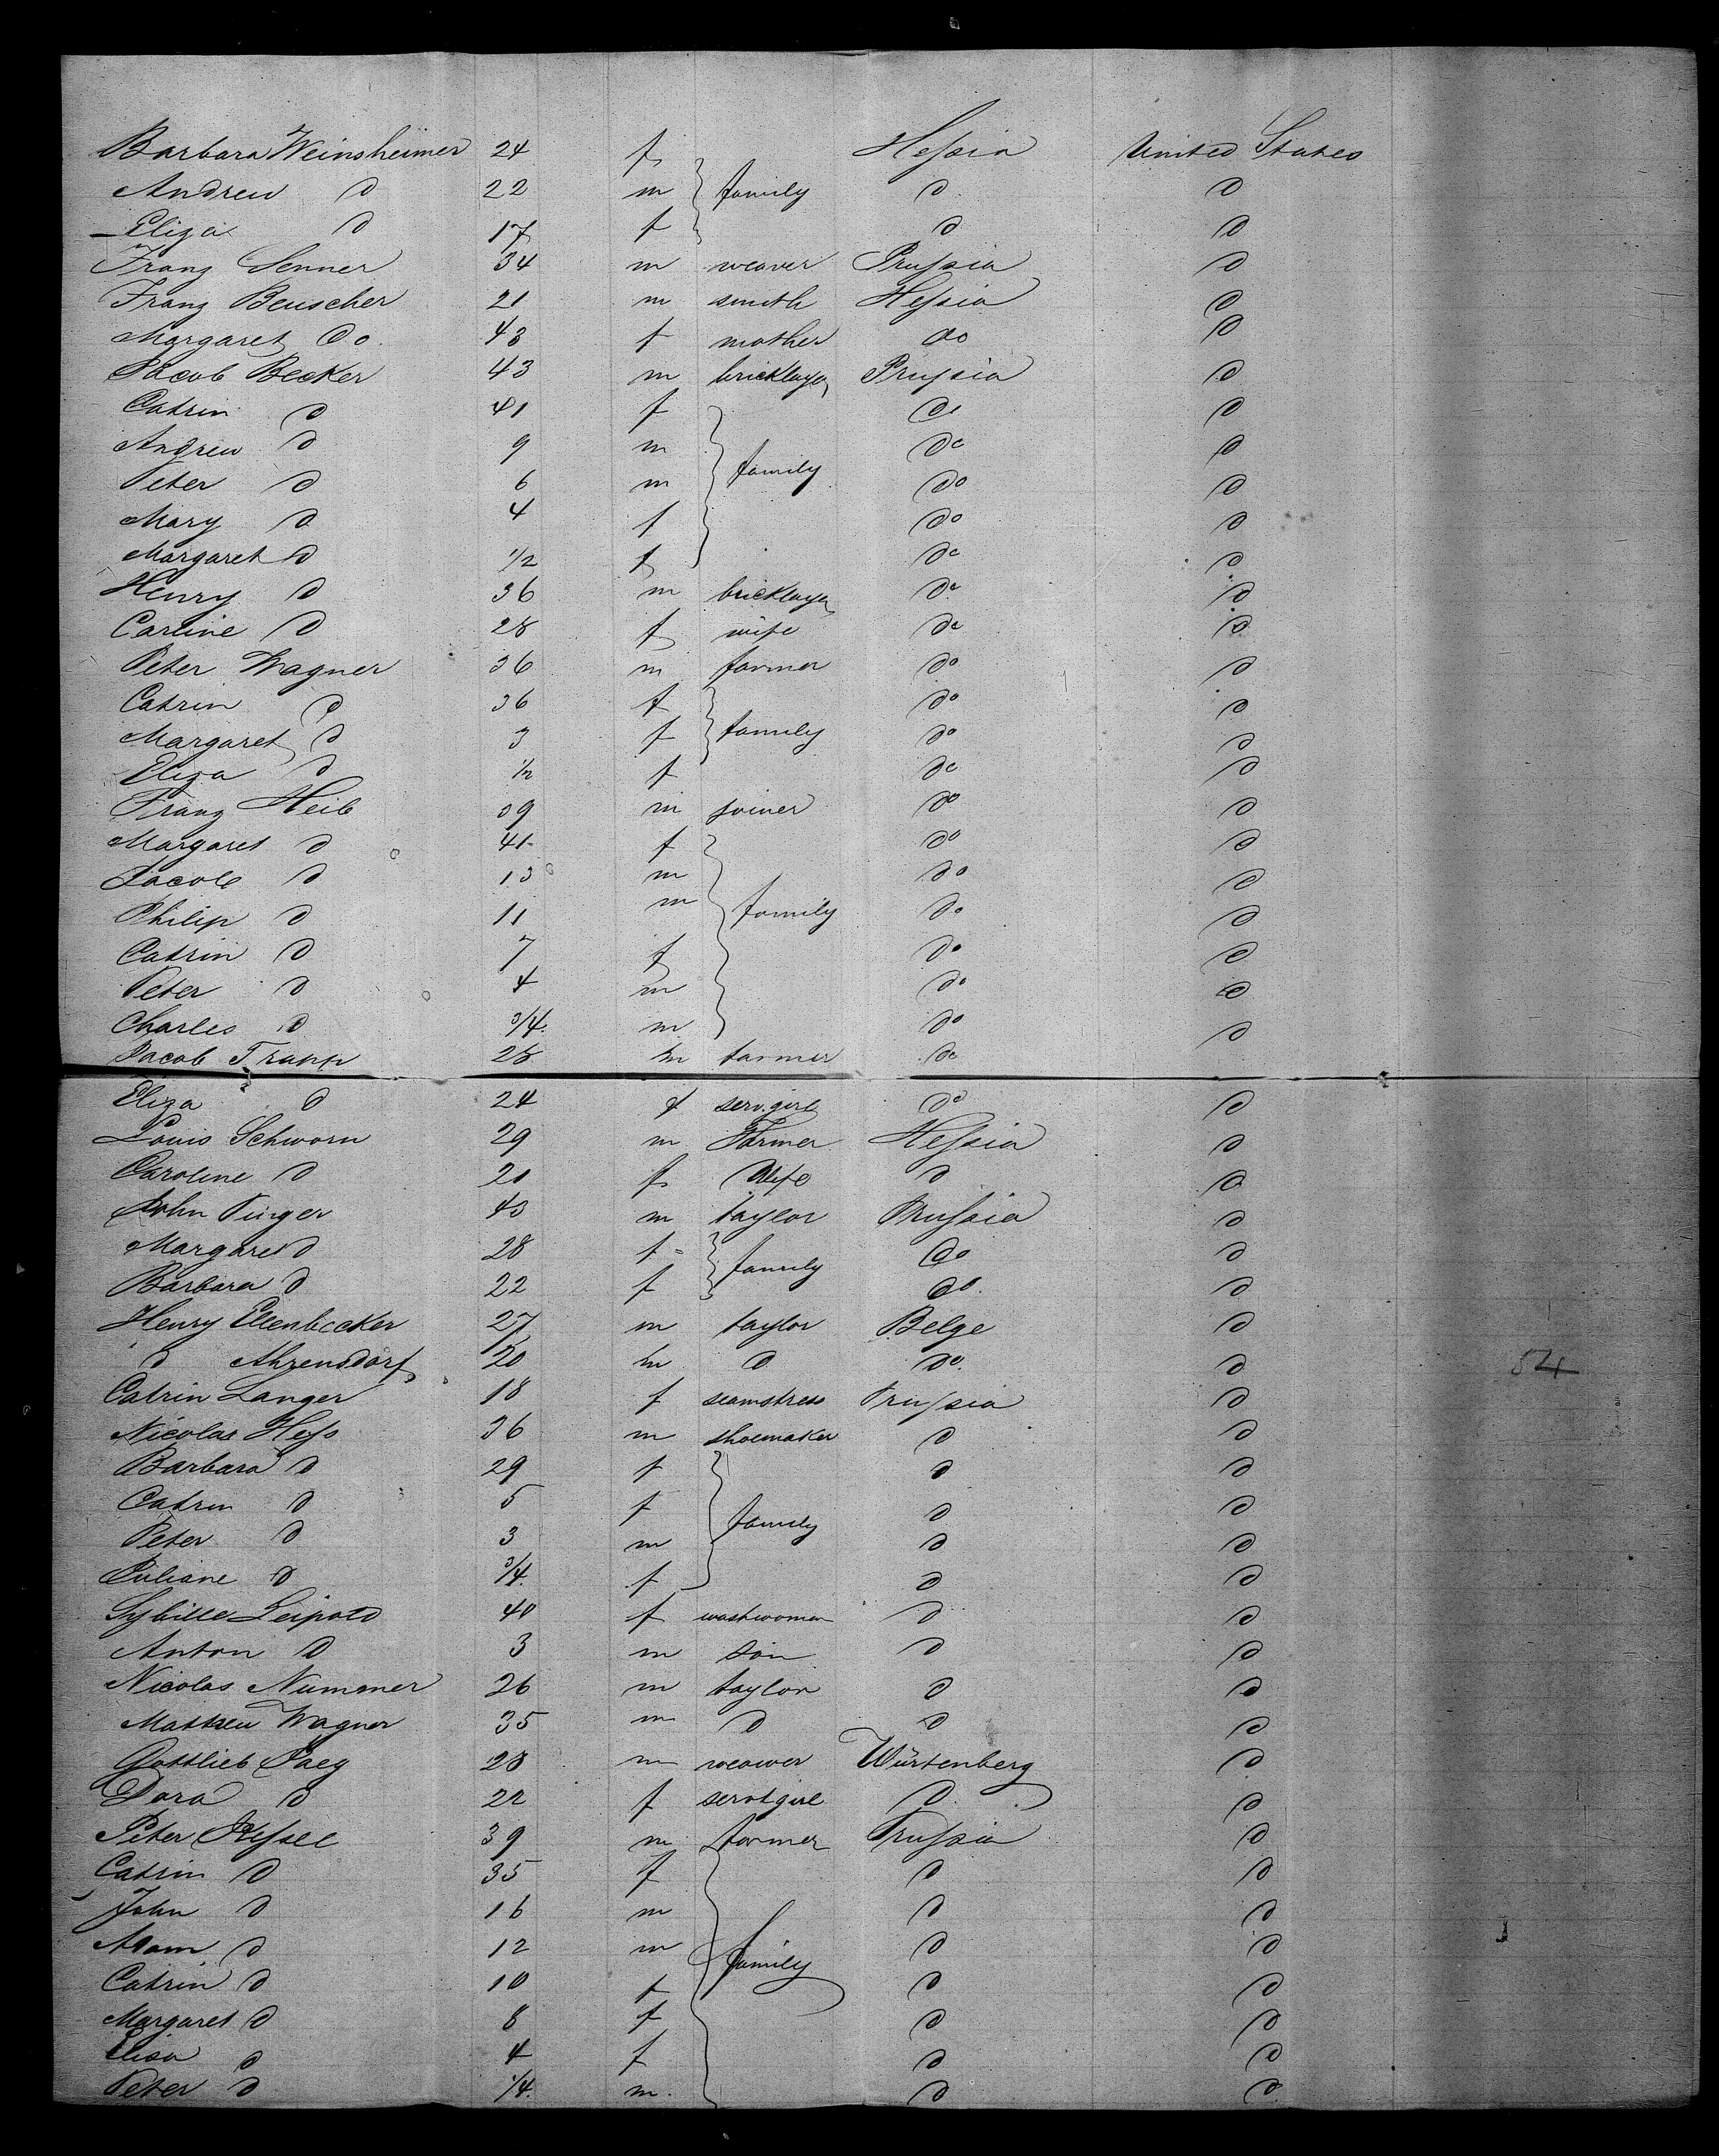 Barbara Weinsheimer 24 f Hessia United States
Andrew d 22 m family d d
Eliza d 17 f d d
Franz Senner 34 m weaver Prussia d
Franz Beuscher 21 m smith Hessia d
Margaret Do. 43 f mother do d
Jacob Becker 43 m bricklayer Prussia d
Catrin d 41 f do d
Andrew d 9 m do d
Peter d 6 m family do d
Mary d 4 f do d
Margaret d 1/2 f do d
Henry d 36 m bricklayer do d
Carline d 28 f wife do d
Peter Wagner 36 m farmer do d
Catrin d 36 f do d
Margaret d 3 f family do d
Eliza d 1/2 f do d
Franz Heib 39 m joiner do d
Margaret d 41 f do d
Jacob d 13 m do d
Philip d 11 m family do d
Catrin d 7 f do d
Peter d 4 m do d
Charles d 3/4. m do d
Jacob Trapp 28 m farmer do
Eliza d 24 f serv. girl do d
Louis Schworn 29 m Farmer Hessia d
Caroline d 21 f Wife d d
John Pinger 43 m taylor Prussia d
Margaret d 28 f Do d
Barbara d 22 f family do. d
Henry Ellenbecker 27 m taylor Belge d
d Ahrensdorf 20 m d do. d 54
Catrin Langer 18 f seamstress Prussia d
Nicolas Hess 36 m shoemaker d d
Barbara d 29 f d d
Catrin d 5 f family d d
Peter d 3 m d d
Juliane d 3/4. f d d
Sybille Leipold 40 f washwoman d d
Anton d 3 m son d d
Nicolas Nummer 26 m taylor d d
Mathew Wagner 35 m d d d
Gottlieb Jaeg 28 m weawer Würtenberg d
Dora d 22 f servtgirl d. d
Peter Kessel 39 m farmer Prussia d
Catrin d 35 f d d
John d 16 m d d
Adam d 12 m family d d
Catrin d 10 f d d
Margaret d 8 f d d
Elisa d 4 f d d
Peter d 1/4. m. d d